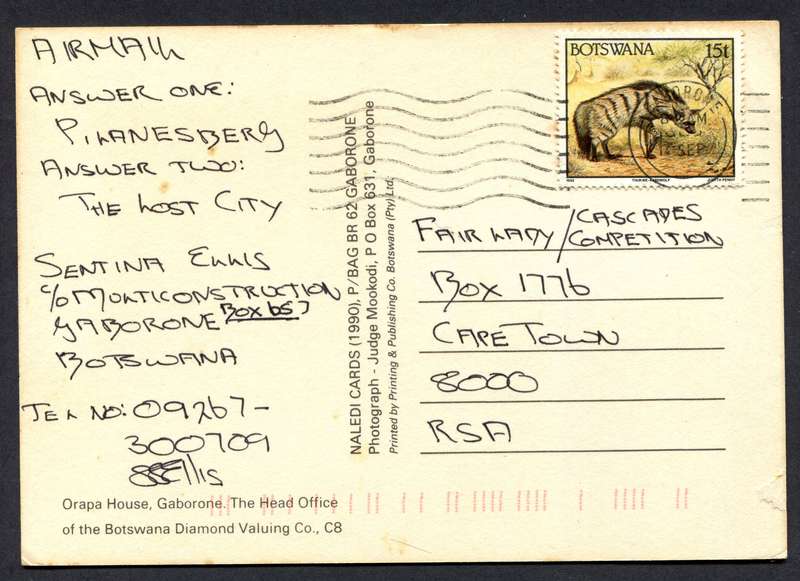 AIRMAIL
ANSWER ONE:
PILANESBERG
ANSWER TWO:
THE LOST CITY
SENTINA ELLIS
C/O MULTICONSTRUCTION
GABORONE BOX 657
BOTSWANA
TEL NO: 09267-
300709
SSEllis
Orapa House, Gaborone. The Head Office
of the Botswana Diamond Valuing Co., C8
NALEDI CARDS (1990), P/BAG BR 62 GABORONE
Photograph - Judge Mookodi, P O Box 631, Gaborone
Printed by Printing & Publishing Co. Botswana (Pty) Ltd.
BOTSWANA 15t
GABORONE
SEP
FAIR LADY/CASCADES COMPETITION
BOX 1776
CAPE TOWN
8000
RSA